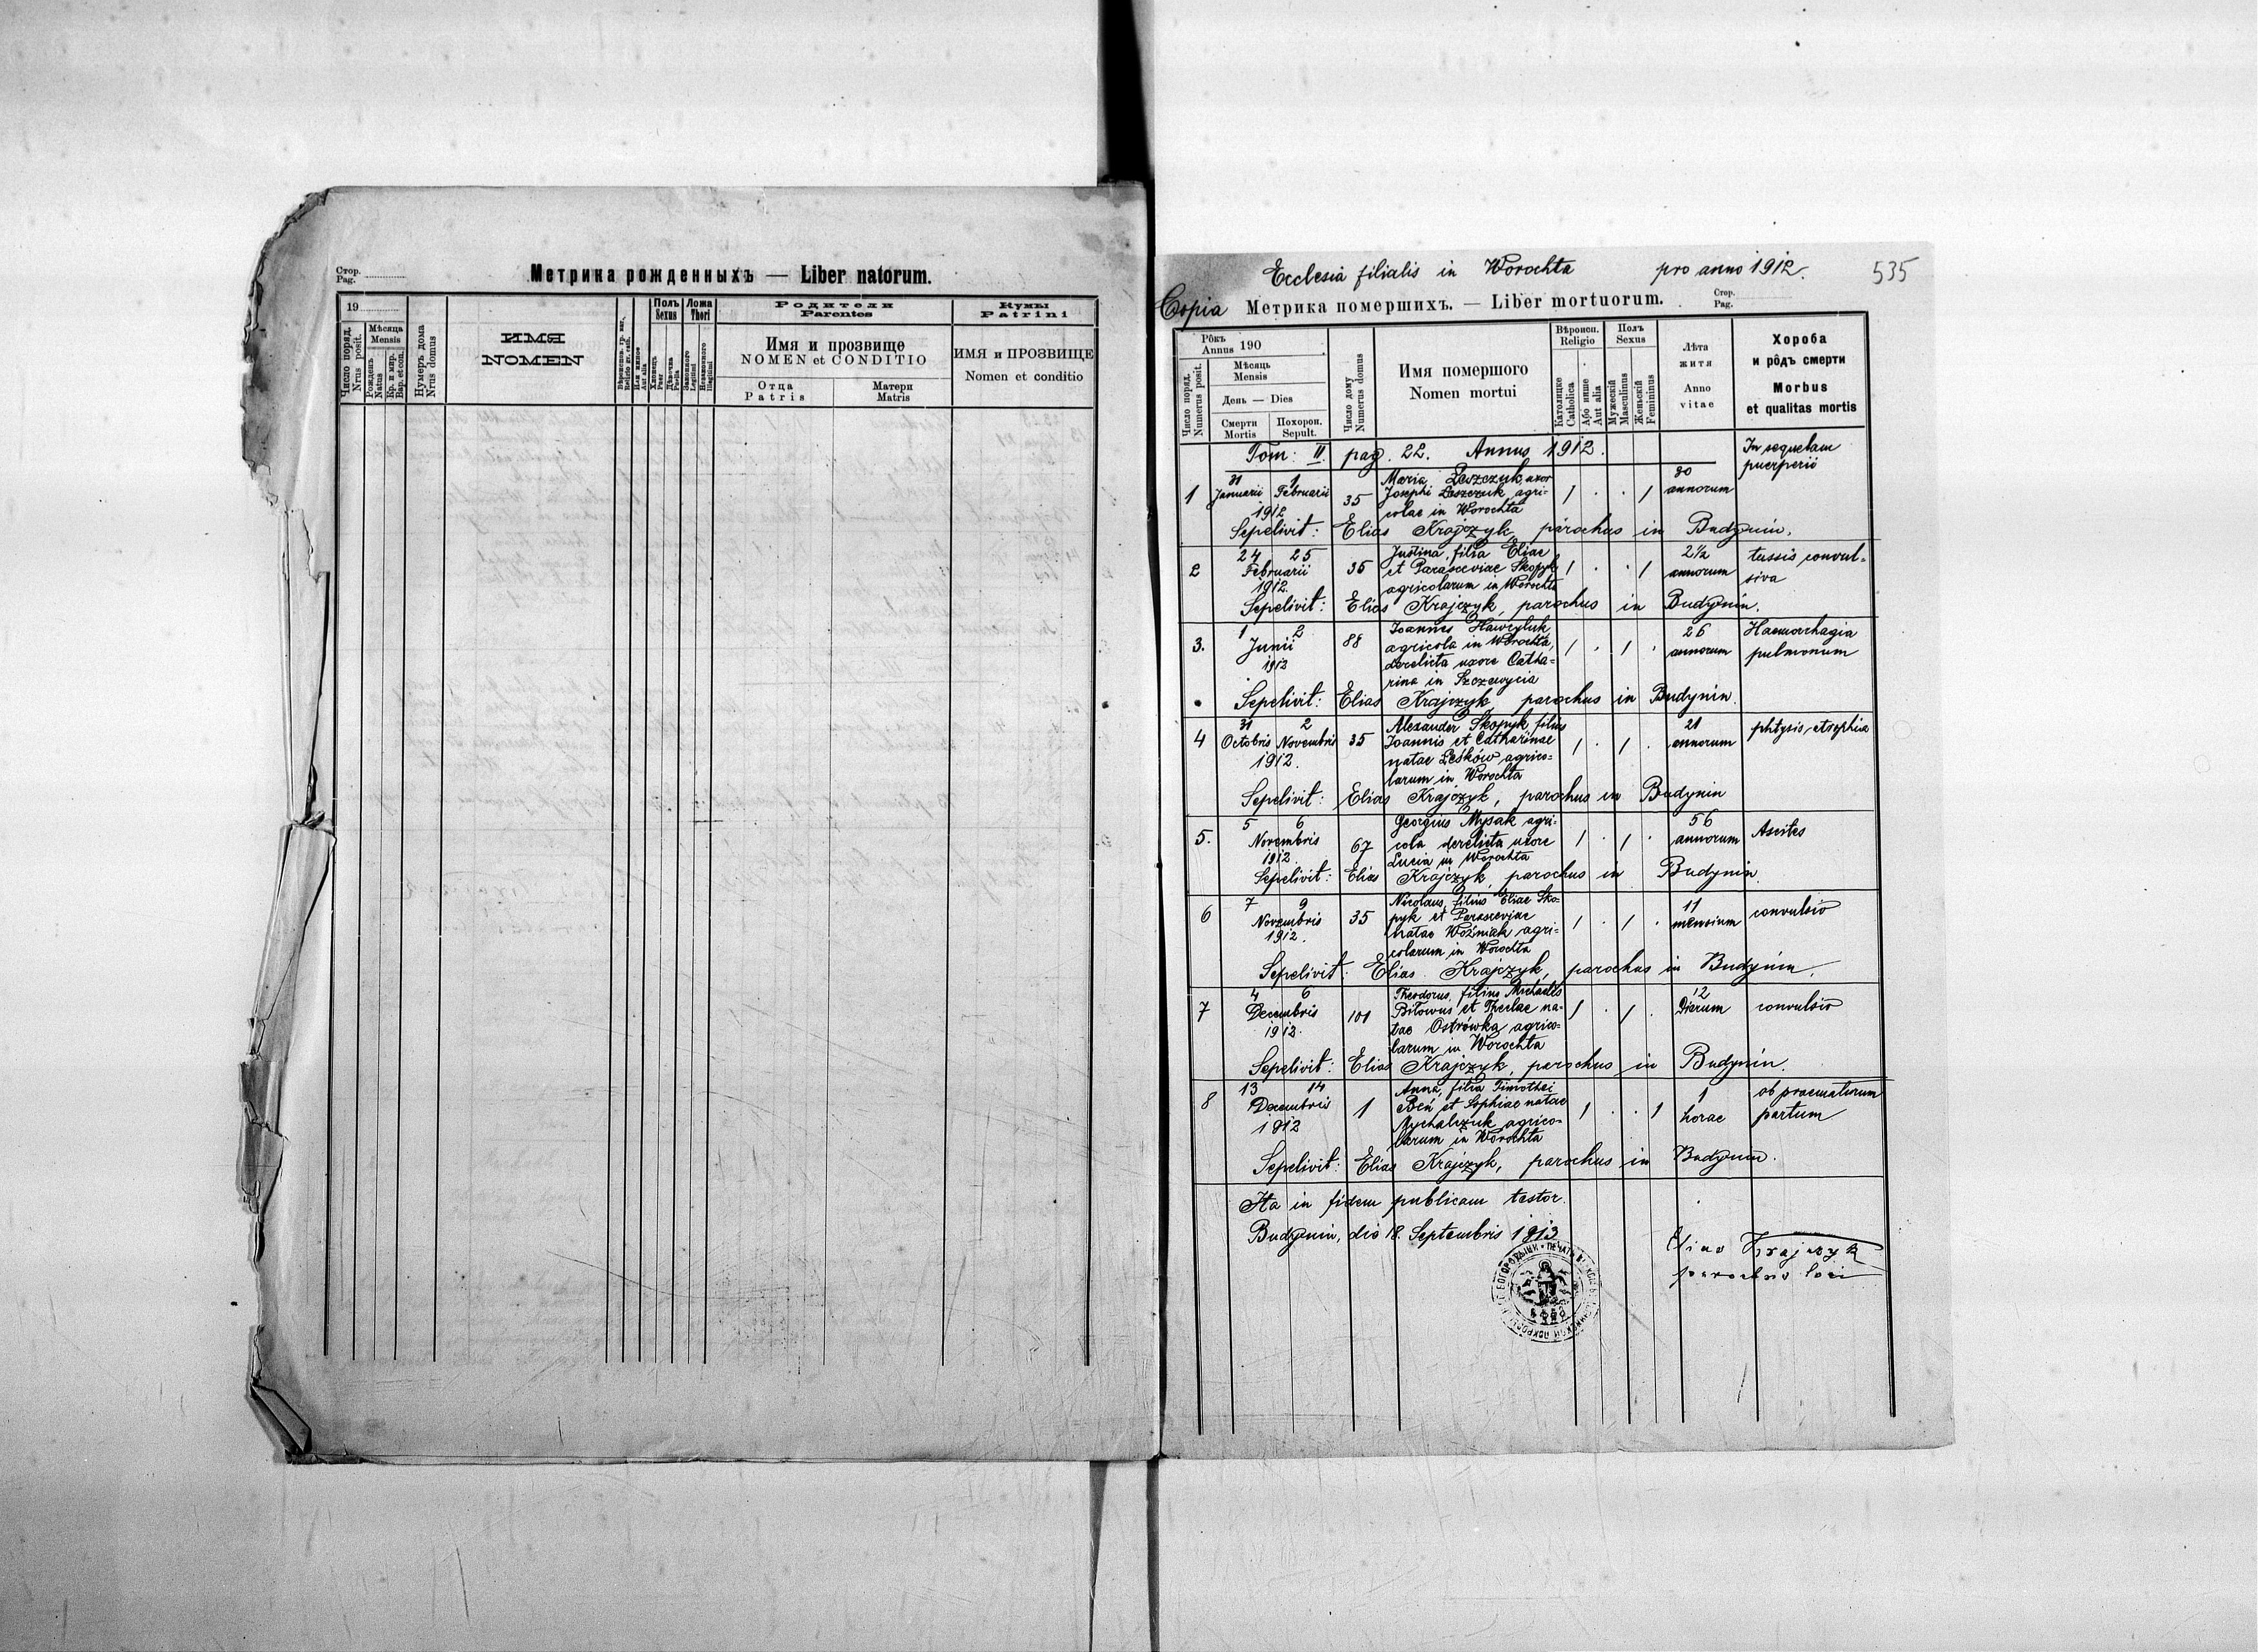 Стор.
Pag.
Метрика рожденныхъ — Liber natorum.
19
Число поряд.
Nrus posit.
Мѣсяца
Mensis
Рожденъ
Natus
Кр. и мир.
Bap. et con.
Нумеръ дома
Nrus domus
ИМЯ
NOMEN
Полъ
Sexus
Ложа
Thori
Родители
Parentes
Имя и прозвище
NOMEN et CONDITIO
Отца
Patris
Матери
Matris
Кумы
Patrini
ИМЯ и ПРОЗВИЩЕ
Nomen et conditio
Ecclesia filialis in Worochta pro anno 1912.
535
Copia Метрика помершихъ. — Liber mortuorum.
Стор.
Pag.
Число поряд.
Numerus posit.
Рôкъ
Annus 190
Мѣсяць
Mensis
День — Dies
Смерти
Mortis
Похорон.
Sepult.
Число дому
Numerus domus
Имя помершого
Nomen mortui
Вѣроисп.
Religio
Католицке
Catholica
Або инше
Aut alia
Полъ
Sexus
Мужескій
Masculinus
Женьскій
Femininus
Лѣта
житя
Anno
vitae
Хороба
и рôдъ смерти
Morbus
et qualitas mortis
Tom: II. pag. 22. Annus 1912.
1
31 1
Januarii Februarii
1912
35
Maria Leszczuk, uxor
Josephi Leszczuk agri-
colae in Worochta
1 . . 1
30
annorum
In sequelam
puerperii
Sepelivit: Elias Krajczyk, parochus in Budynin.
2
24 25
Februarii
1912.
35
Justina, filia Eliae
et Parasceviae Skopyk
agricolarum in Worochta
1 . . 1
2½
annorum
tussis convul-
siva
Sepelivit: Elias Krajczyk, parochus in Budynin.
3.
1 2
Junii
1912
88
Joannes Hawryluk
agricola in Worochta,
derelicta uxore Catha-
rina in Szczewycia
1 . 1 .
26
annorum
Haemorhagia
pulmonum
Sepelivit: Elias Krajczyk parochus in Budynin.
4
31 2
Octobris Novembris
1912.
35
Alexander Skopyk, filius
Joannis et Catharinae
natae Leśków agrico-
larum in Worochta
1 . 1 .
21
annorum
phtysis, atrophia
Sepelivit: Elias Krajczyk, parochus in Budynin
5.
5 6
Novembris
1912.
67
Georgius Mysak agri-
cola derelicta uxore
Lucia in Worochta
1 . 1 .
56
annorum
Ascites
Sepelivit: Elias Krajczyk, parochus in Budynin.
6
7 9
Novembris
1912.
35
Nicolaus, filius Eliae Sko-
pyk et Parasceviae
natae Woźniak agri-
colarum in Worochta
1 . 1 .
11
mensium
convulsio
Sepelivit: Elias Krajczyk, parochus in Budynin.
7
4 6
Decembris
1912.
101
Theodorus, filius Michaelis
Biłowus et Theclae na-
tae Ostrówka agrico-
larum in Worochta
1 . 1 .
12
Dierum
convulsio
Sepelivit: Elias Krajczyk, parochus in Budynin.
8
13 14
Decembris
1912
1
Anna, filia Timothei
Beń et Sophiae natae
Mychalczuk agrico-
larum in Worochta
1 . . 1
1
horae
ob praematurum
partum
Sepelivit: Elias Krajczyk, parochus in Budynin.
Ita in fidem publicam testor.
Budynin, die 18. Septembris 1913
Elias Krajczyk
parochus loci